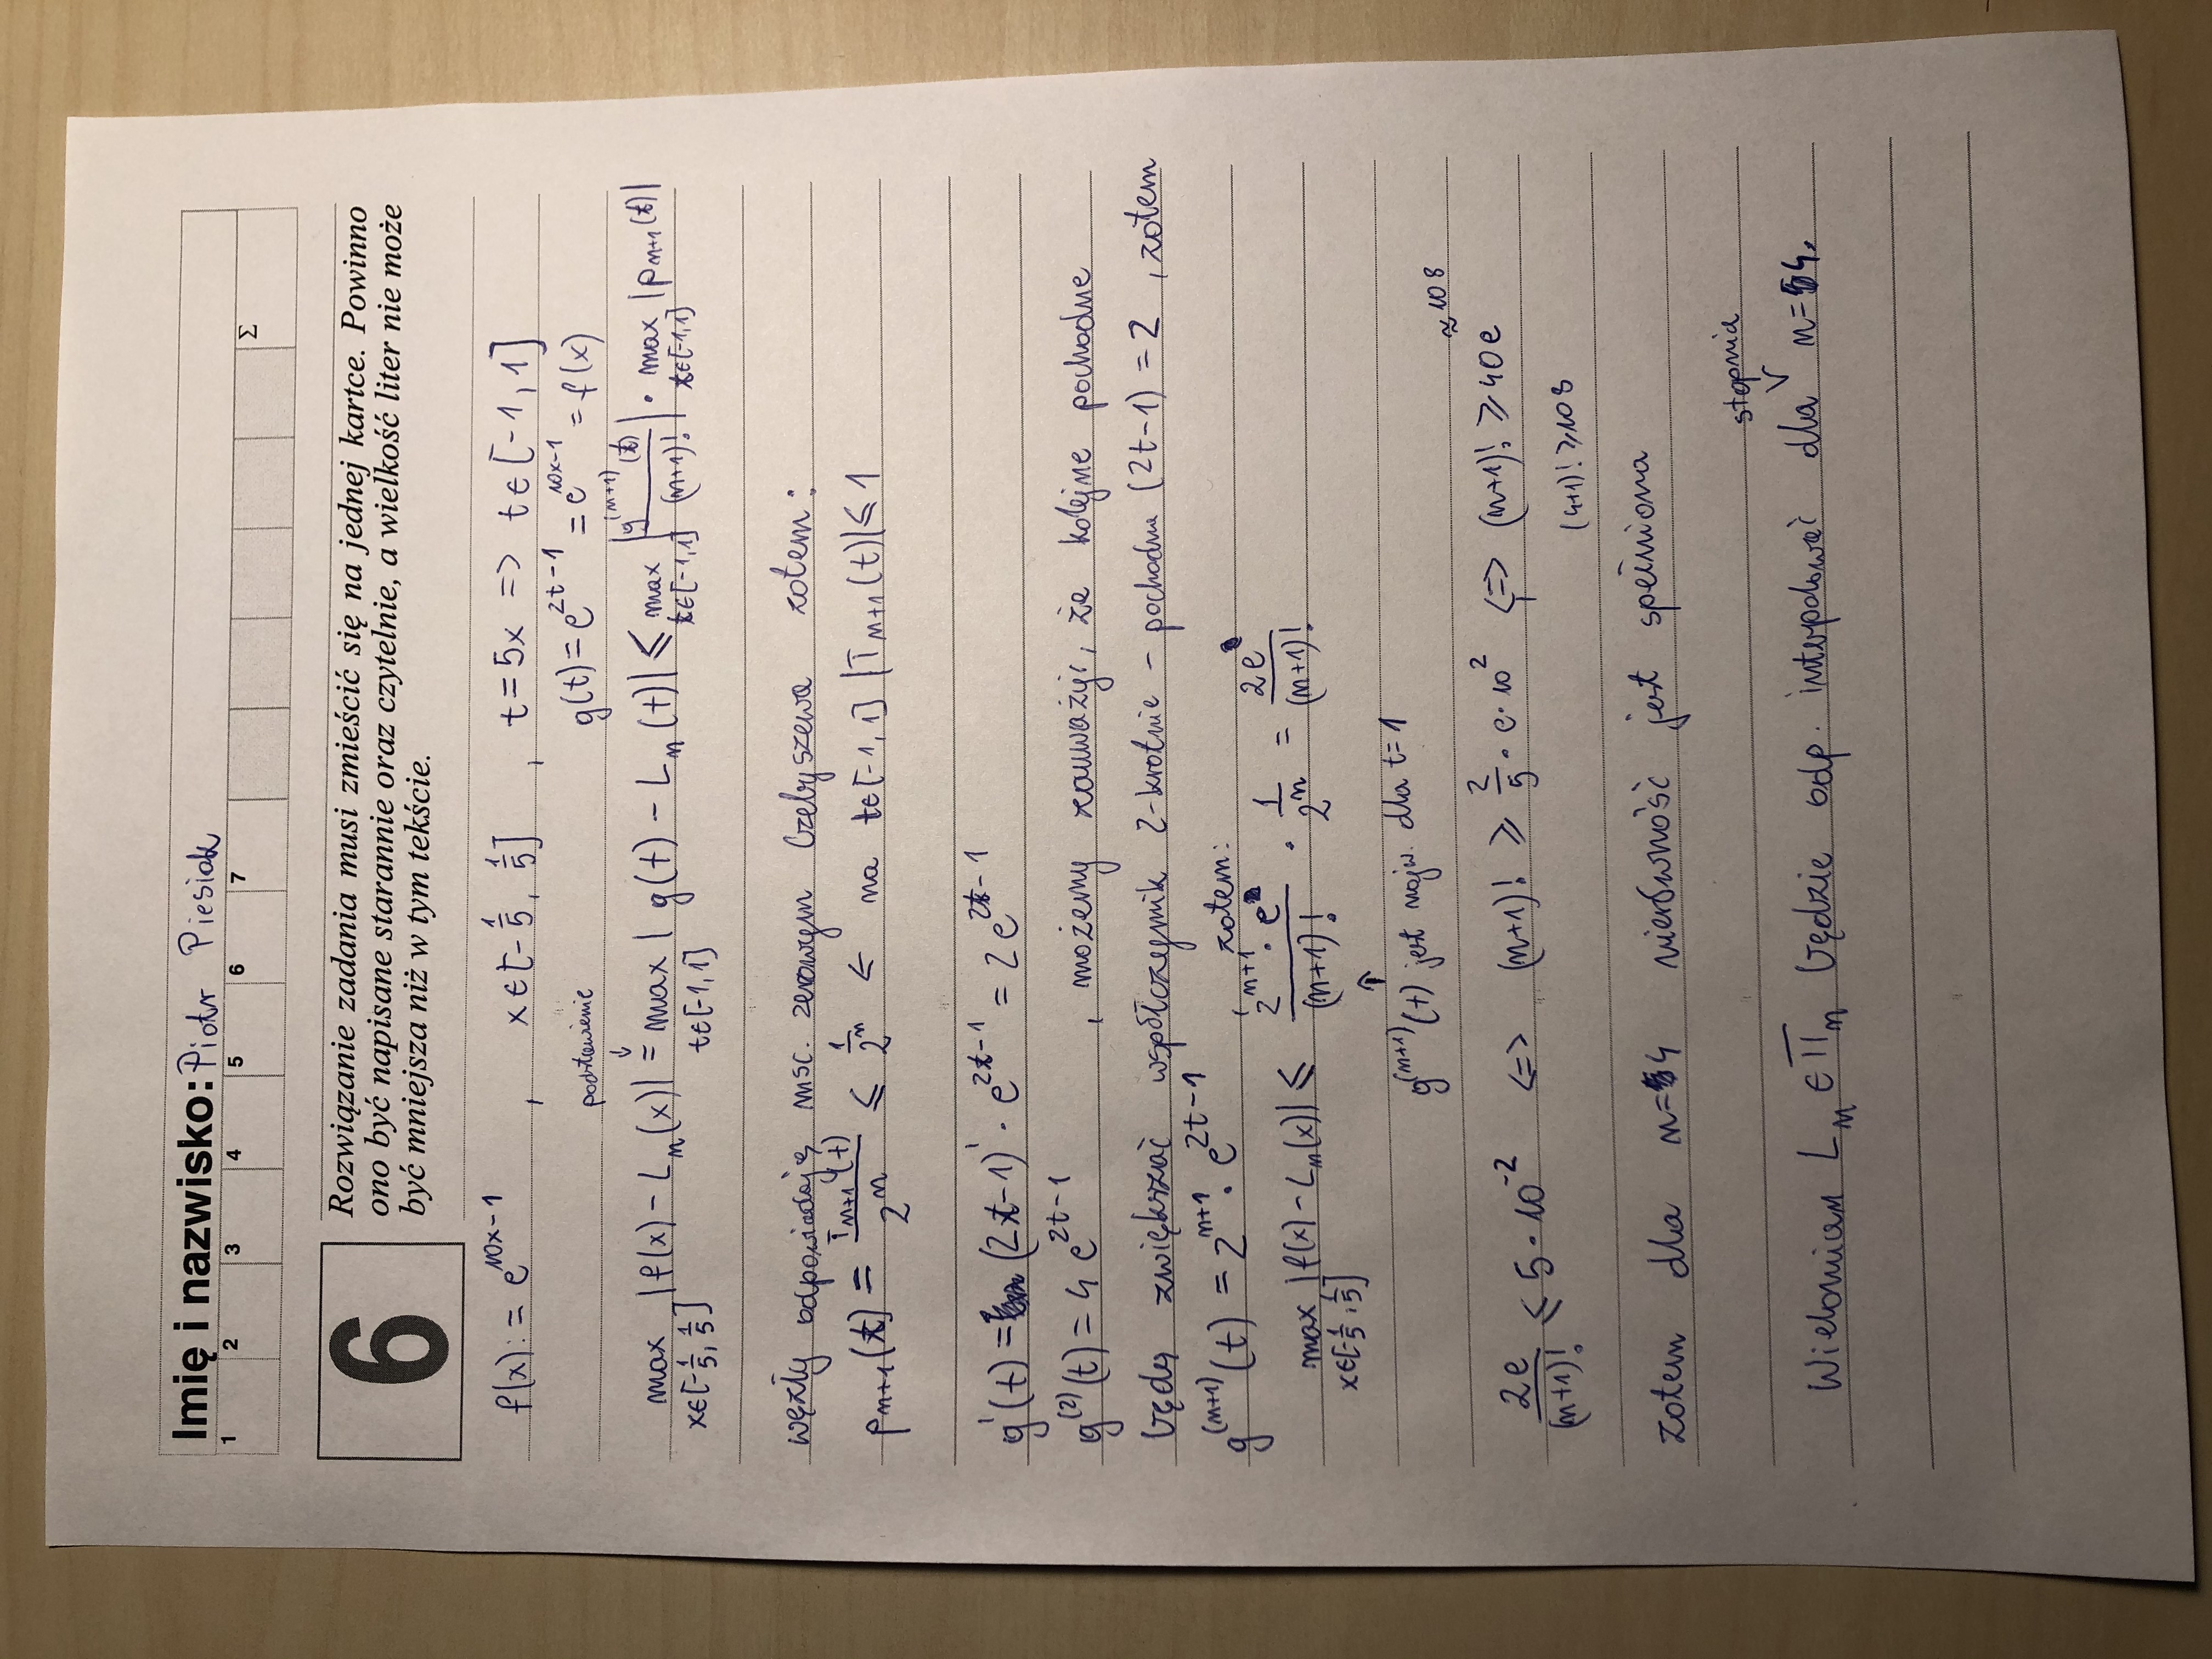 Imię i nazwisko: Piotr Piesiak
1 2 3 4 5 6 7 Σ
6
Rozwiązanie zadania musi zmieścić się na jednej kartce. Powinno
ono być napisane starannie oraz czytelnie, a wielkość liter nie może
być mniejsza niż w tym tekście.
f(x) := e^{10x-1} , x∈[-1/5, 1/5] , t=5x => t∈[-1,1]
g(t) = e^{2t-1} = e^{10x-1} = f(x)
podstawienie ↓
max_{x∈[-1/5, 1/5]} |f(x) - L_n(x)| = max_{t∈[-1,1]} |g(t) - L_n(t)| ≤ max_{t∈[-1,1]} |g^{(n+1)}(t)/(n+1)!| · max_{t∈[-1,1]} |p_{n+1}(t)|
węzły odpowiadają msc. zerowym Czebyszewa zatem:
p_{n+1}(t) = T_{n+1}(t)/2^n ≤ 1/2^n ← na t∈[-1,1] |T_{n+1}(t)| ≤ 1
g'(t) = (2t-1)' · e^{2t-1} = 2e^{2t-1}
g^{(2)}(t) = 4e^{2t-1} , możemy zauważyć, że kolejne pochodne
będą zwiększać współczynnik 2-krotnie – pochodna (2t-1) = 2 , zatem
g^{(n+1)}(t) = 2^{n+1} · e^{2t-1} , zatem:
max_{x∈[-1/5, 1/5]} |f(x) - L_n(x)| ≤ 2^{n+1} · e/(n+1)! · 1/2^n = 2e/(n+1)!
↑
g^{(n+1)}(t) jest najw. dla t=1
2e/(n+1)! ≤ 5·10^{-2} <=> (n+1)! ≥ 2/5 · e · 10^2 <=> (n+1)! ≥ 40e ≈108
(4+1)! ≥ 108
zatem dla n=4 nierówność jest spełniona
stopnia
Wielomian L_n ∈ Π_n będzie odp. interpolować dla ∨ n=4.